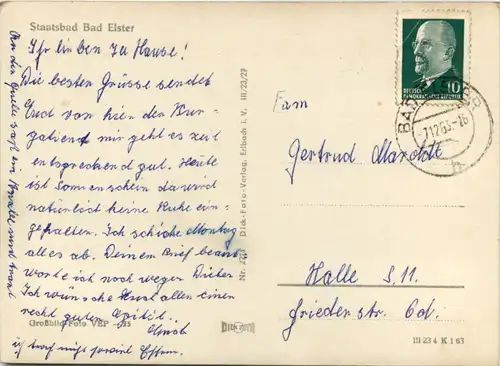 Staatsbad Bad Elster
Ihr lieben zu Hause!
Die besten Grüsse sendet
Euch von hier den Kur-
mir geht es zeit
entsprechend gut. Heute
ist Sonnenschein da wird
natürlich keine Ruhe ein-
gehalten. Ich schicke Montag
alles ab. Deinen Brief beant
worte ich noch wegen
Ich wünsche Euch allen einen
recht guten
Großbild-Foto VEP -,25
ich darf nicht soviel Essen.
Nr. Dick-Foto-Verlag, Erlbach i. V. III/23/27
DICK FOTO
DEUTSCHE
DEMOKRATISCHE REPUBLIK
10
BAD
Fam
Gertrud
Halle S. 11.
Friedenstr. 6d.
III 23 4 K 1 63